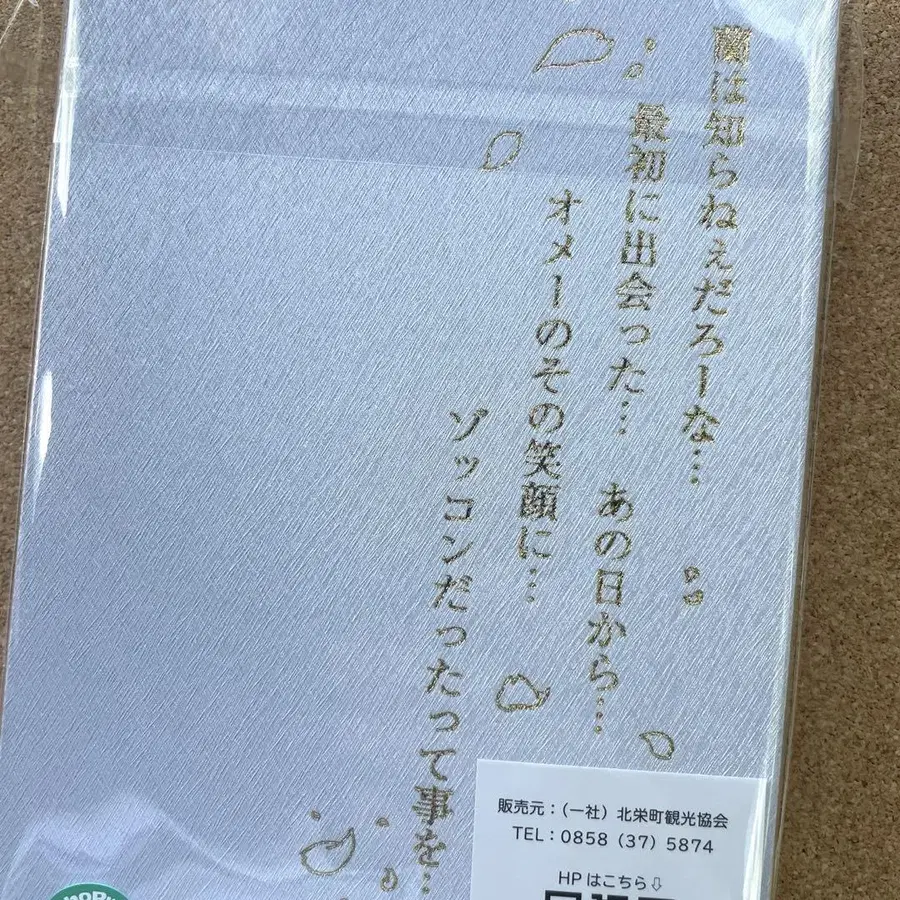 蘭は知らねぇだろーな…
最初に出会った… あの日から…
オメーのその笑顔に…
ゾッコンだったって事を…
販売元：（一社）北栄町観光協会
TEL：0858（37）5874
HPはこちら⇩